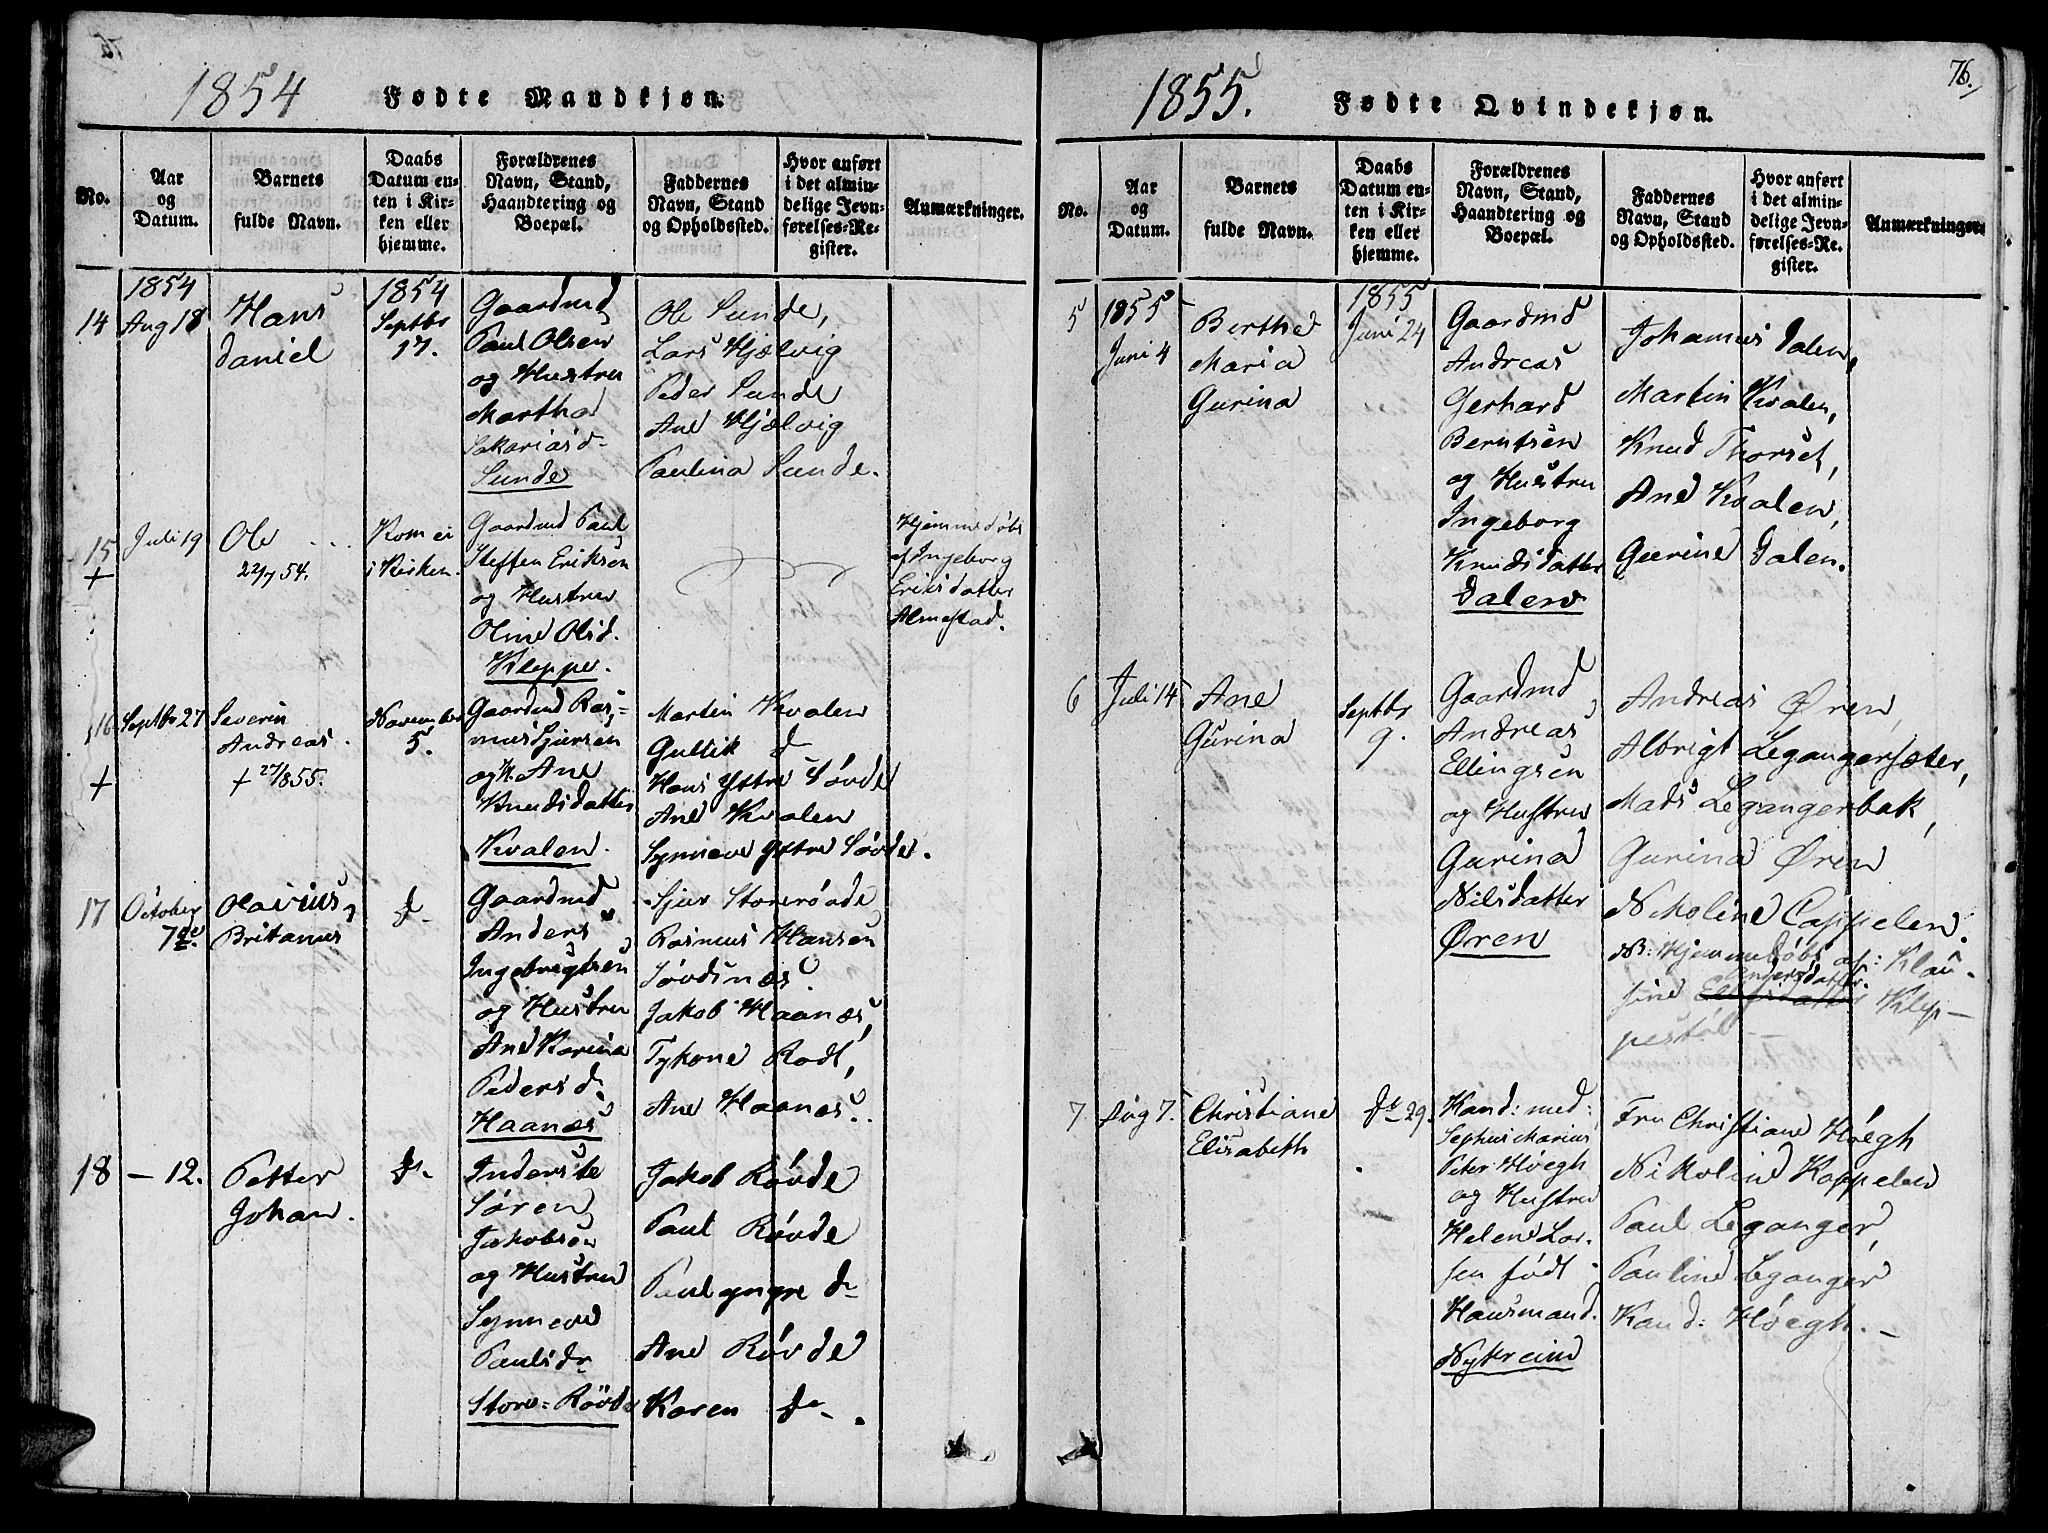 1854 Fødte Mandkjøn.
No.
Aar
og
Datum.
Barnets
fulde Navn.
Daabs
Datum en-
ten i Kir-
ken eller
hjemme.
Forældrenes
Navn, Stand,
Haandtering og
Boepæl.
Faddernes
Navn, Stand
og Opholdssted.
Hvor anført
i det almin-
delige Jevn-
førelses-Re-
gister.
Anmærkninger.
14
1854
Aug 18
Hans
Daniel
1854
Septbr
17.
Gaardmd
Paul Olsen
og Hustru
Martha
Sakariasd-
Sunde
Ole Sunde,
Lars Hjelvig
Peder Sunde
Ane Hjelvig
Paulina Sunde.
15
+
Juli 19
Ole ...
22/7 54.
Kom ei
i Kirken.
Gaardmd Paul
Steffen Eriksen
og Hustru
Oline Olsd.
Kleppe.
Hjemmedøbt
af Ingeborg
Eriksdatter
Almestad.
16
+
Septbr 27
Severin
Andreas.
+ 27/8 55.
November
5.
Gaardmd Ras-
mus Sjursen
og H. Ane
Knudsdatter
Kvalen.
Martin Kvalen
Gullik d
Hans Yttre Søvde
Ane Kvalen
Synneve Yttre Søvde.
17
October
7de.
Olavius
Britanus
d-
Gaardmd
Anders
Ingebrigtsen
og Hustru
Ane Karina
Pedersd.
Haanæs
Sjur Storerøvde
Rasmus Hansen
Søvdsnæs.
Jakob Haanæs,
Tykone Rodt,
Ane Haanæs.
18
- 12.
Petter
Johan.
d-
Inderste
Søren
Jakobsen
og Hustru
Synneve
Paulsdr
Store-Røvde
Jakob Røvde
Paul Røvde
Paul yngre d-
Ane Røvde
Karen d-.
1855. Fødte Qvindekjøn.
76.
No.
Aar
og
Datum.
Barnets
fulde Navn.
Daabs
Datum en-
ten i Kir-
ken eller
hjemme.
Forældrenes
Navn, Stand,
Haandtering og
Boepæl.
Faddernes
Navn, Stand
og Opholdssted.
Hvor anført
i det almin-
delige Jevn-
førelses-Re-
gister.
Anmærkninger.
5
1855
Juni 4
Berthe
Maria
Gurina
1855
Juni 24
Gaardmd
Andreas
Gerhard
Berntsen
og Hustru
Ingeborg
Knudsdatter
Dalen
Johannes Dalen,
Martin Kvalen,
Knud Thorset,
Ane Kvalen,
Gurine Dalen.
6
Juli 14
Ane
Gurina
Septbr
9.
Gaardmd
Andreas
Ellingsen
og Hustru
Gurina
Nilsdatter
Øren
Andreas Øren,
Albrigt Legangersæter,
Mads Legangerbak,
Gurina Øren
Nikoline Cappelen.
NB: Hjemmedøbt af: Klau-
sine Andersdatter Klep-
pestøl -
7
Aug 7.
Christiane
Elisabeth
d- 29.
Kand: med:
Sophus Marius
Peter Høegh
og Hustru
Helene Lar-
sen født
Hausmand.
Nykreim
Fru Christiane Høegh
Nikoline Kappelen
Paul Leganger,
Pauline Leganger
Kand: Høegh. -